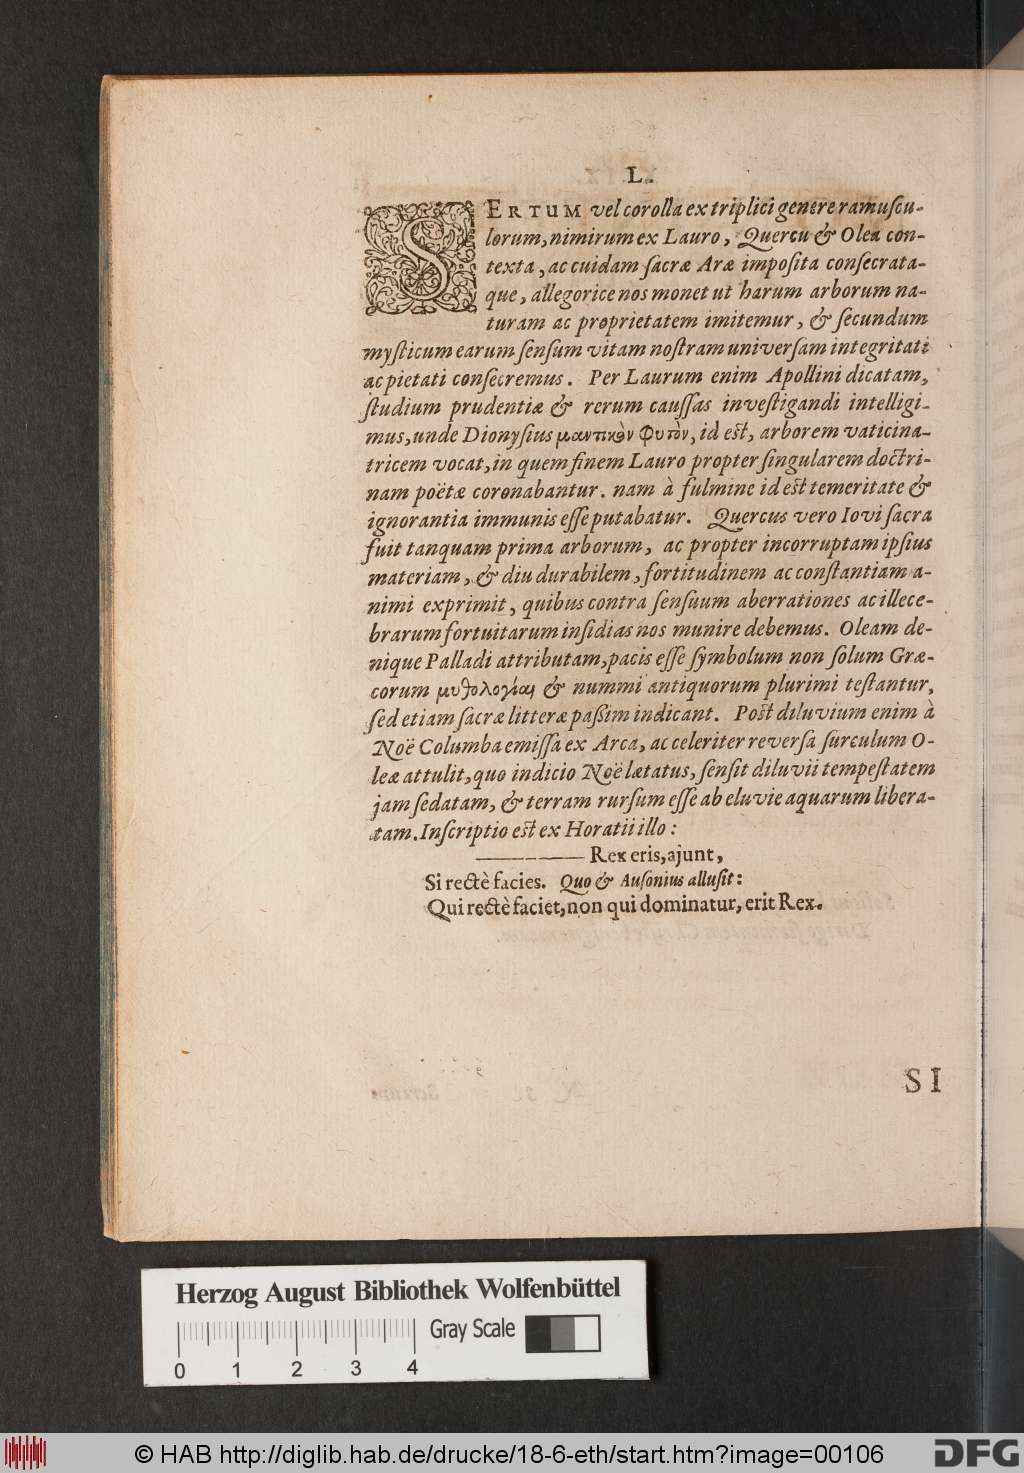 L.
SERTUM vel corolla ex triplici genere ramuſcu-
lorum, nimirum ex Lauro, Quercu & Olea con-
texta, ac cuidam ſacræ Aræ impoſita conſecrata-
que, allegorice nos monet ut harum arborum na-
turam ac proprietatem imitemur, & ſecundum
myſticum earum ſenſum vitam noſtram univerſam integritati
ac pietati conſecremus. Per Laurum enim Apollini dicatam,
ſtudium prudentiæ & rerum cauſſas inveſtigandi intelligi-
mus, unde Dionyſius μαντικὸν φυτὸν, id eſt, arborem vaticina-
tricem vocat, in quem finem Lauro propter ſingularem doctri-
nam poëtæ coronabantur. nam à fulmine id eſt temeritate &
ignorantia immunis eſſe putabatur. Quercus vero Iovi ſacra
fuit tanquam prima arborum, ac propter incorruptam ipſius
materiam, & diu durabilem, fortitudinem ac conſtantiam a-
nimi exprimit, quibus contra ſenſuum aberrationes ac illece-
brarum fortuitarum inſidias nos munire debemus. Oleam de-
nique Palladi attributam, pacis eſſe ſymbolum non ſolum Græ-
corum μυθολογίαι & nummi antiquorum plurimi teſtantur,
ſed etiam ſacræ litteræ paßim indicant. Poſt diluvium enim à
Noë Columba emiſſa ex Arca, ac celeriter reverſa ſurculum O-
leæ attulit, quo indicio Noë lætatus, ſenſit diluvii tempeſtatem
jam ſedatam, & terram rurſum eſſe ab eluvie aquarum libera-
tam. Inſcriptio eſt ex Horatii illo:
——— Rex eris, ajunt,
Si rectè facies. Quo & Auſonius alluſit:
Qui rectè faciet, non qui dominatur, erit Rex.
SI
Herzog August Bibliothek Wolfenbüttel
Gray Scale
0 1 2 3 4
© HAB http://diglib.hab.de/drucke/18-6-eth/start.htm?image=00106
DFG